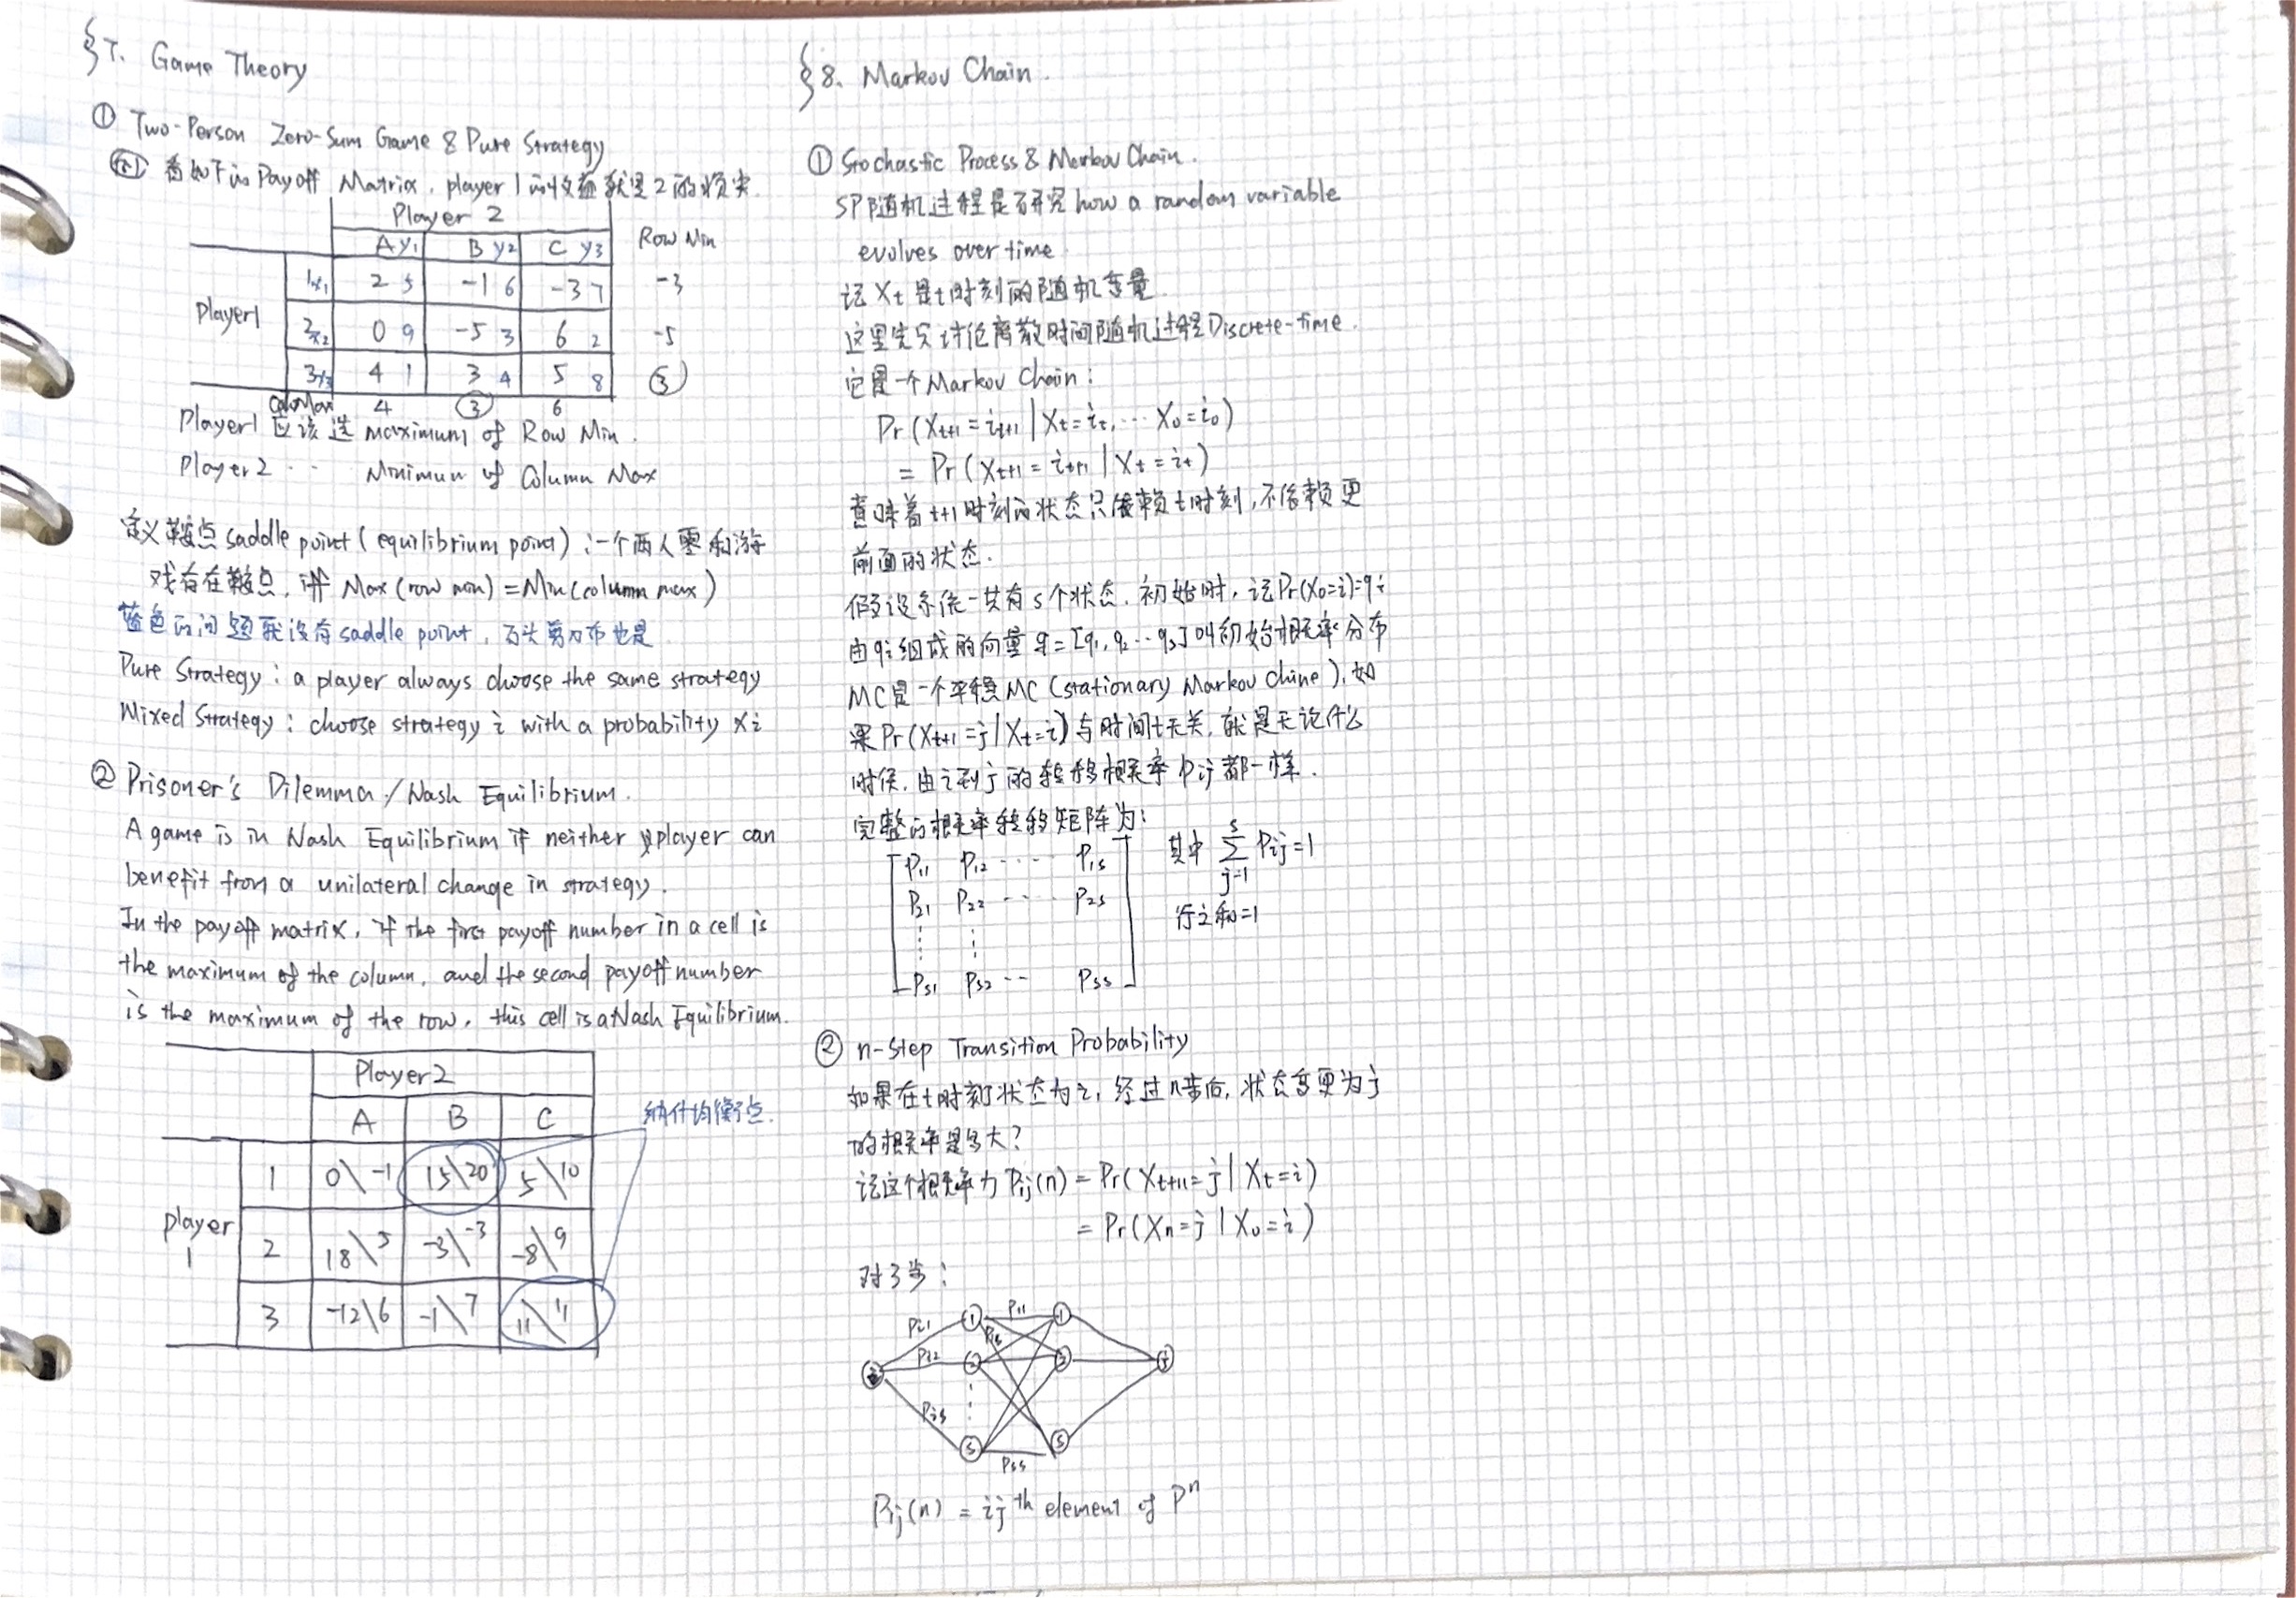 §7. Game Theory
① Two-Person Zero-Sum Game & Pure Strategy
例 看如下的 Payoff Matrix, player 1 的收益就是2的损失.
Player 2
A y₁ B y₂ C y₃ Row Min
1 x₁ 2 5 -1 6 -3 7 -3
Player1 2 x₂ 0 9 -5 3 6 2 -5
3 x₃ 4 1 3 4 5 8 ③
Colu Max 4 ③ 6
Player1 应该选 maximum of Row Min.
Player2 ‥ Minimun of Column Max
定义鞍点 saddle point (equilibrium point): 一个两人零和游
戏存在鞍点, iff Max (row min) = Min (column max)
蓝色的问题就没有 saddle point, 石头剪刀布也是
Pure Strategy: a player always choose the same strategy
Mixed Strategy: choose strategy i with a probability xi
② Prisoner's Dilemma / Nash Equilibrium.
A game is in Nash Equilibrium if neither player can
benefit from a unilateral change in strategy.
In the payoff matrix, if the first payoff number in a cell is
the maximum of the column, and the second payoff number
is the maximum of the row, this cell is a Nash Equilibrium.
Player2
A B C 纳什均衡点.
1 0\-1 15\20 5\10
player 1 2 18\5 -3\-3 -8\9
3 -12\6 -1\7 11\11
§8. Markov Chain.
① Stochastic Process & Markov Chain.
SP随机过程是研究 how a random variable
evolves over time
记 Xt 是t时刻的随机变量.
这里先只讨论离散时间随机过程 Discrete-time.
它是一个 Markov Chain:
Pr(Xt+1 = it+1 | Xt = it, ⋯ X0 = i0)
= Pr(Xt+1 = it+1 | Xt = it)
意味着t+1时刻的状态只依赖t时刻, 不依赖更
前面的状态.
假设系统一共有s个状态. 初始时, 记Pr(X0=i)=qi
由qi组成的向量 q = [q1, q2 ⋯ qs] 叫初始概率分布
MC是一个平稳MC (stationary Markov chine), 如
果 Pr(Xt+1 = j | Xt = i) 与时间t无关. 就是无论什么
时候, 由i到j的转移概率 Pij 都一样.
完整的概率转移矩阵为:
P11 P12 ⋯⋯ P1s 其中 Σ_{j=1}^{s} Pij = 1
P21 P22 ⋯⋯ P2s 行之和=1
⋮ ⋮
Ps1 Ps2 ⋯ Pss
② n-Step Transition Probability
如果在t时刻状态为i, 经过n步后, 状态变更为j
的概率是多大?
记这个概率为 Pij(n) = Pr(Xt+n = j | Xt = i)
= Pr(Xn = j | X0 = i)
对3步:
Pi1 ① P11 ①
P1s
i Pi2 ② ② j
Pis
s Pss s
Pij(n) = ij th element of Pⁿ